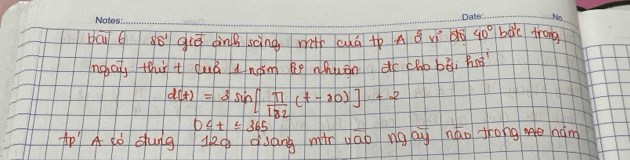 Notes: Date: No
bài 6 số giờ ánh sáng mtr cuả tp A ở vĩ độ 40° bắc trong
ngaỳ thứ t cuả 1 năm ko nhuận đc cho bởi, hsố
d(t) = 3 sin[ π/182 (t - 80) ] + 2
0 < t ≤ 365
tp A có đung 12g ásang mtr vào ngaỳ nào trong năm